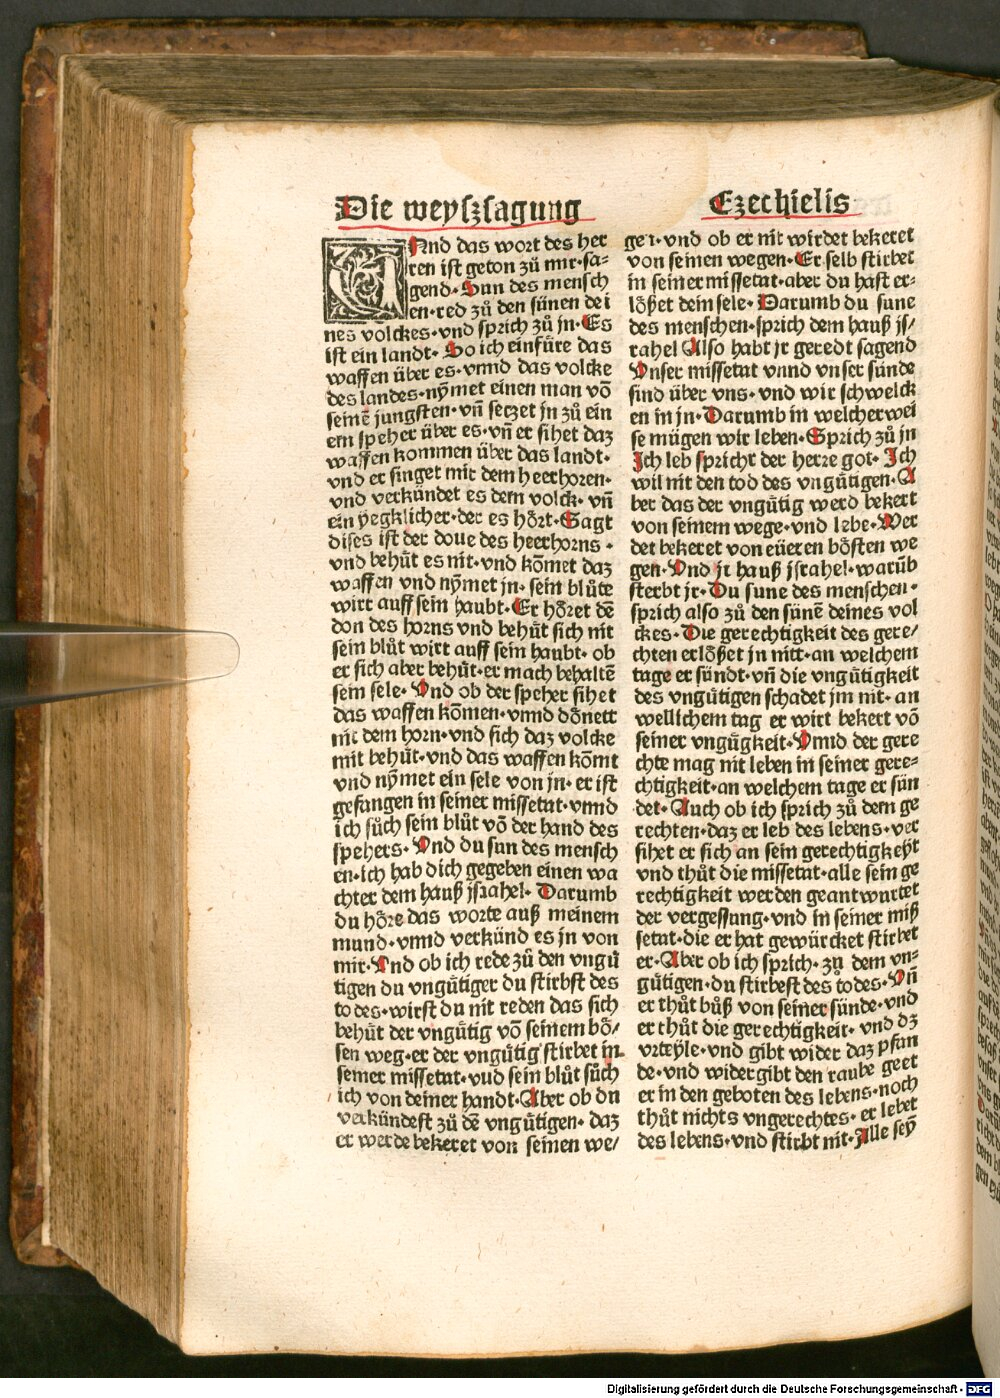 Die weyſzſagung
Ezechielis
Vnd das wort des her
ren iſt geton zů mir·ſa⸗
gend·Sun des menſch
en·red zů den ſünen dei
nes volckes·vnd ſprich zů jn·Es
iſt ein landt·So ich einfüre das
waffen über es·vnnd das volcke
des landes·nÿmet einen man vō
ſeinē jungſten·vñ ſetzet jn zů ein
em ſpeher über es·vñ er ſihet daz
waffen kommen über das landt·
vnd er ſinget mit dem heerhoren·
vnd verkündet es dem volck·vñ
ein yegklicher·der es hört·Sagt
diſes iſt der done des heerhorns·
vnd behůt es nit·vnd kōmet daz
waffen vnd nÿmet jn·ſein blůte
wirt auff ſein haubt·Er höret dē
don des horns vnd behůt ſich nit
ſein blůt wirt auff ſein haubt·ob
er ſich aber behůt·er mach behaltē
ſein ſele·Vnd ob der ſpeher ſihet
das waffen kōmen·vnnd dönett
nit dem horn·vnd ſich daz volcke
mit behůt·vnd das waffen kōmt
vnd nÿmet ein ſele von jn·er iſt
gefangen in ſeiner miſſetat·vnnd
ich ſůch ſein blůt vō der hand des
ſpehers·Vnd du ſun des menſch
en·ich hab dich gegeben einen wa
chter dem hauß jſrahel·Darumb
du höre das worte auß meinem
mund·vnnd verkünd es jn von
mir·Vnd ob ich rede zů den vngů
tigen du vngůtiger du ſtirbſt des
todes·wirſt du nit reden das ſich
behůt der vngůtig vō ſeinem bö/
ſen weg·er der vngůtig ſtirbet in
ſeiner miſſetat·vnd ſein blůt ſůch
ich von deiner handt·Aber ob du
verkündeſt zů dē vngůtigen·daz
er werde bekeret von ſeinen we/
gen·vnd ob er nit wirdet bekeret
von ſeinen wegen·Er ſelb ſtirbet
in ſeiner miſſetat·aber du haſt er⸗
lößet dein ſele·Darumb du ſune
des menſchen·ſprich dem hauß jſ/
rahel Alſo habt jr geredt ſagend
Vnſer miſſetat vnnd vnſer ſünde
ſind über vns·vnd wir ſchwelck
en in jn·Darumb in welcher wei
ſe mügen wir leben·Sprich zů jn
Ich leb ſpricht der herre got·Ich
wil nit den tod des vngůtigen·A
ber das der vngůtig werd bekert
von ſeinem wege·vnd lebe·Wer
det bekeret von eüeren böſten we
gen·Vnd jr hauß jſrahel·warūb
ſterbt jr·Du ſune des menſchen·
ſprich alſo zů den ſünē deines vol
ckes·Die gerechtigkeit des gere/
chten erlößet jn nitt·an welchem
tage er ſündt·vñ die vngůtigkeit
des vngůtigen ſchadet jm nit·an
wellichem tag er wirt bekert vō
ſeiner vngůgkeit·Vnnd der gere
chte mag nit leben in ſeiner gere⸗
chtigkeit·an welchem tage er ſün
det·Auch ob ich ſprich zů dem ge
rechten·daz er leb des lebens·ver
ſihet er ſich an ſein gerechtigkeÿt
vnd thůt die miſſetat·alle ſein ge
rechtigkeit werden geantwurtet
der vergeſſung·vnd in ſeiner miß
ſetat·die er hat gewürcket ſtirbet
er·Aber ob ich ſprich·zu dem vn⸗
gůtigen·du ſtirbeſt des todes·Vñ
er thůt bůß von ſeiner ſünde·vnd
er thůt die gerechtigkeit·vnd dz
vrteÿle·vnd gibt wider daz pfan
de·vnd widergibt den raube geet
er in den geboten des lebens·noch
thůt nichts vngerechtes·er lebet
des lebens·vnd ſtirbt nit·Alle ſeÿ
Digitalisierung gefördert durch die Deutsche Forschungsgemeinschaft - DFG